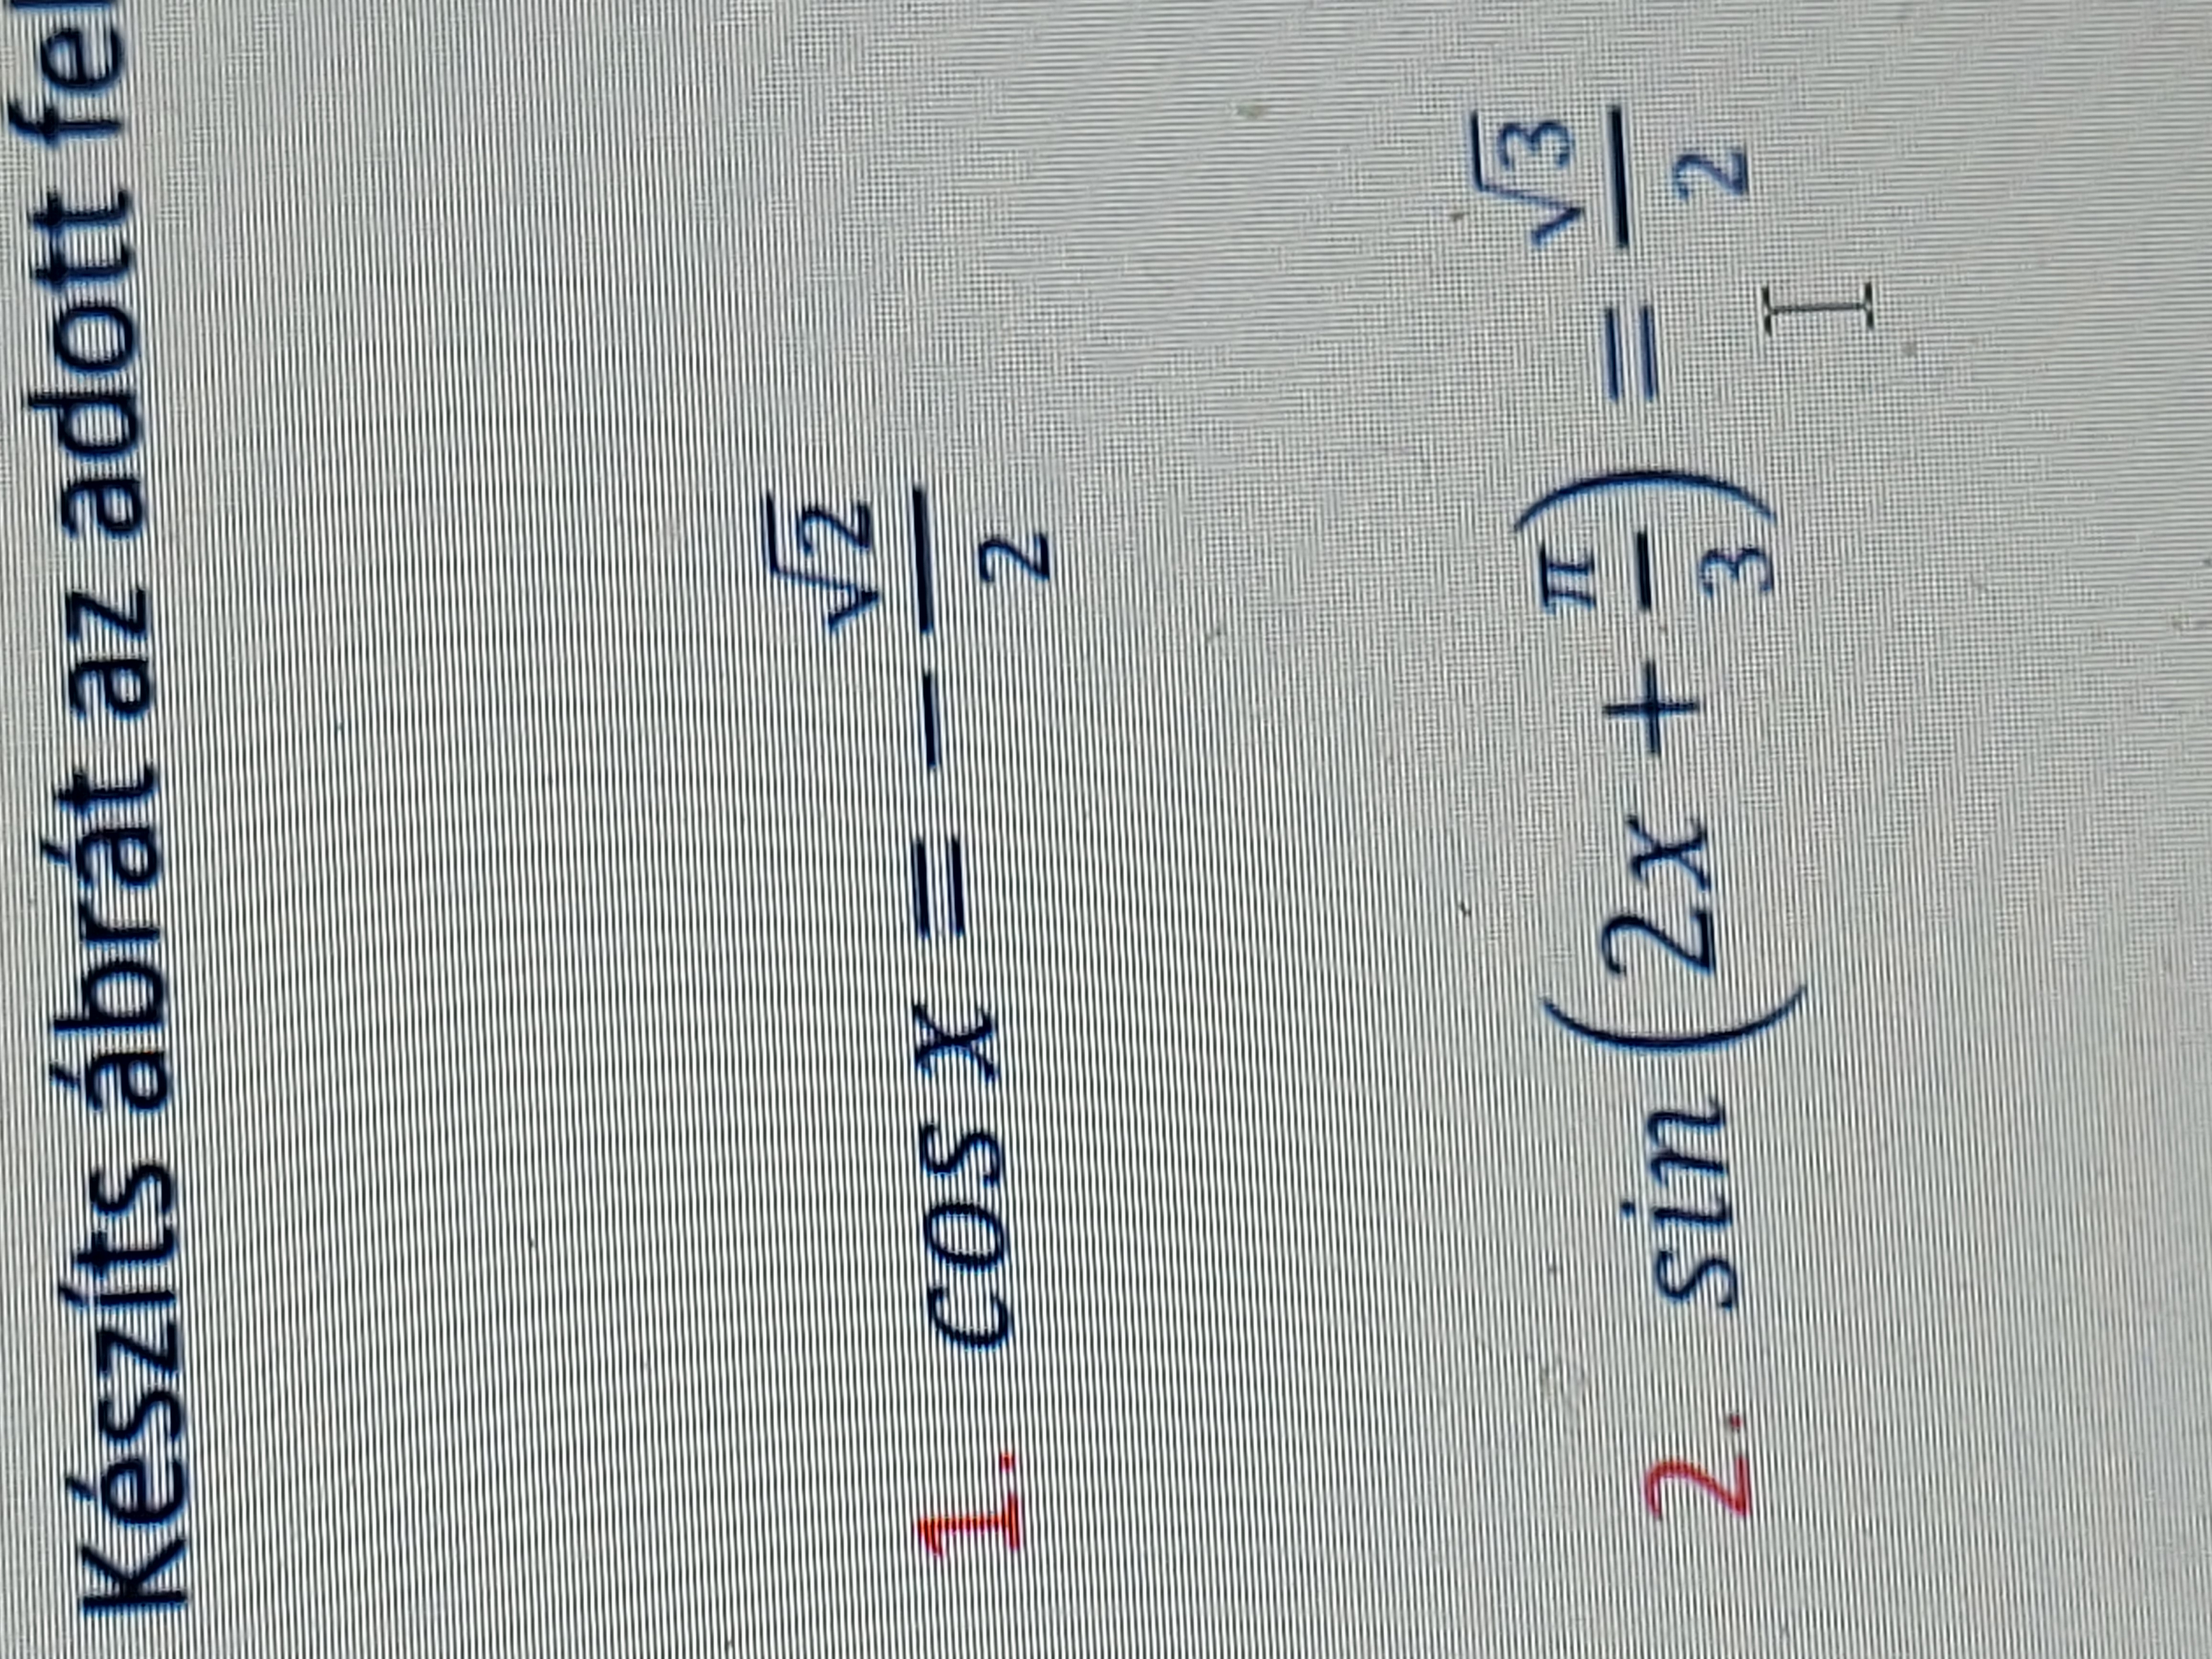 Készíts ábrát az adott
1. cos x = − √2/2
2. sin (2x + π/3) = √3/2